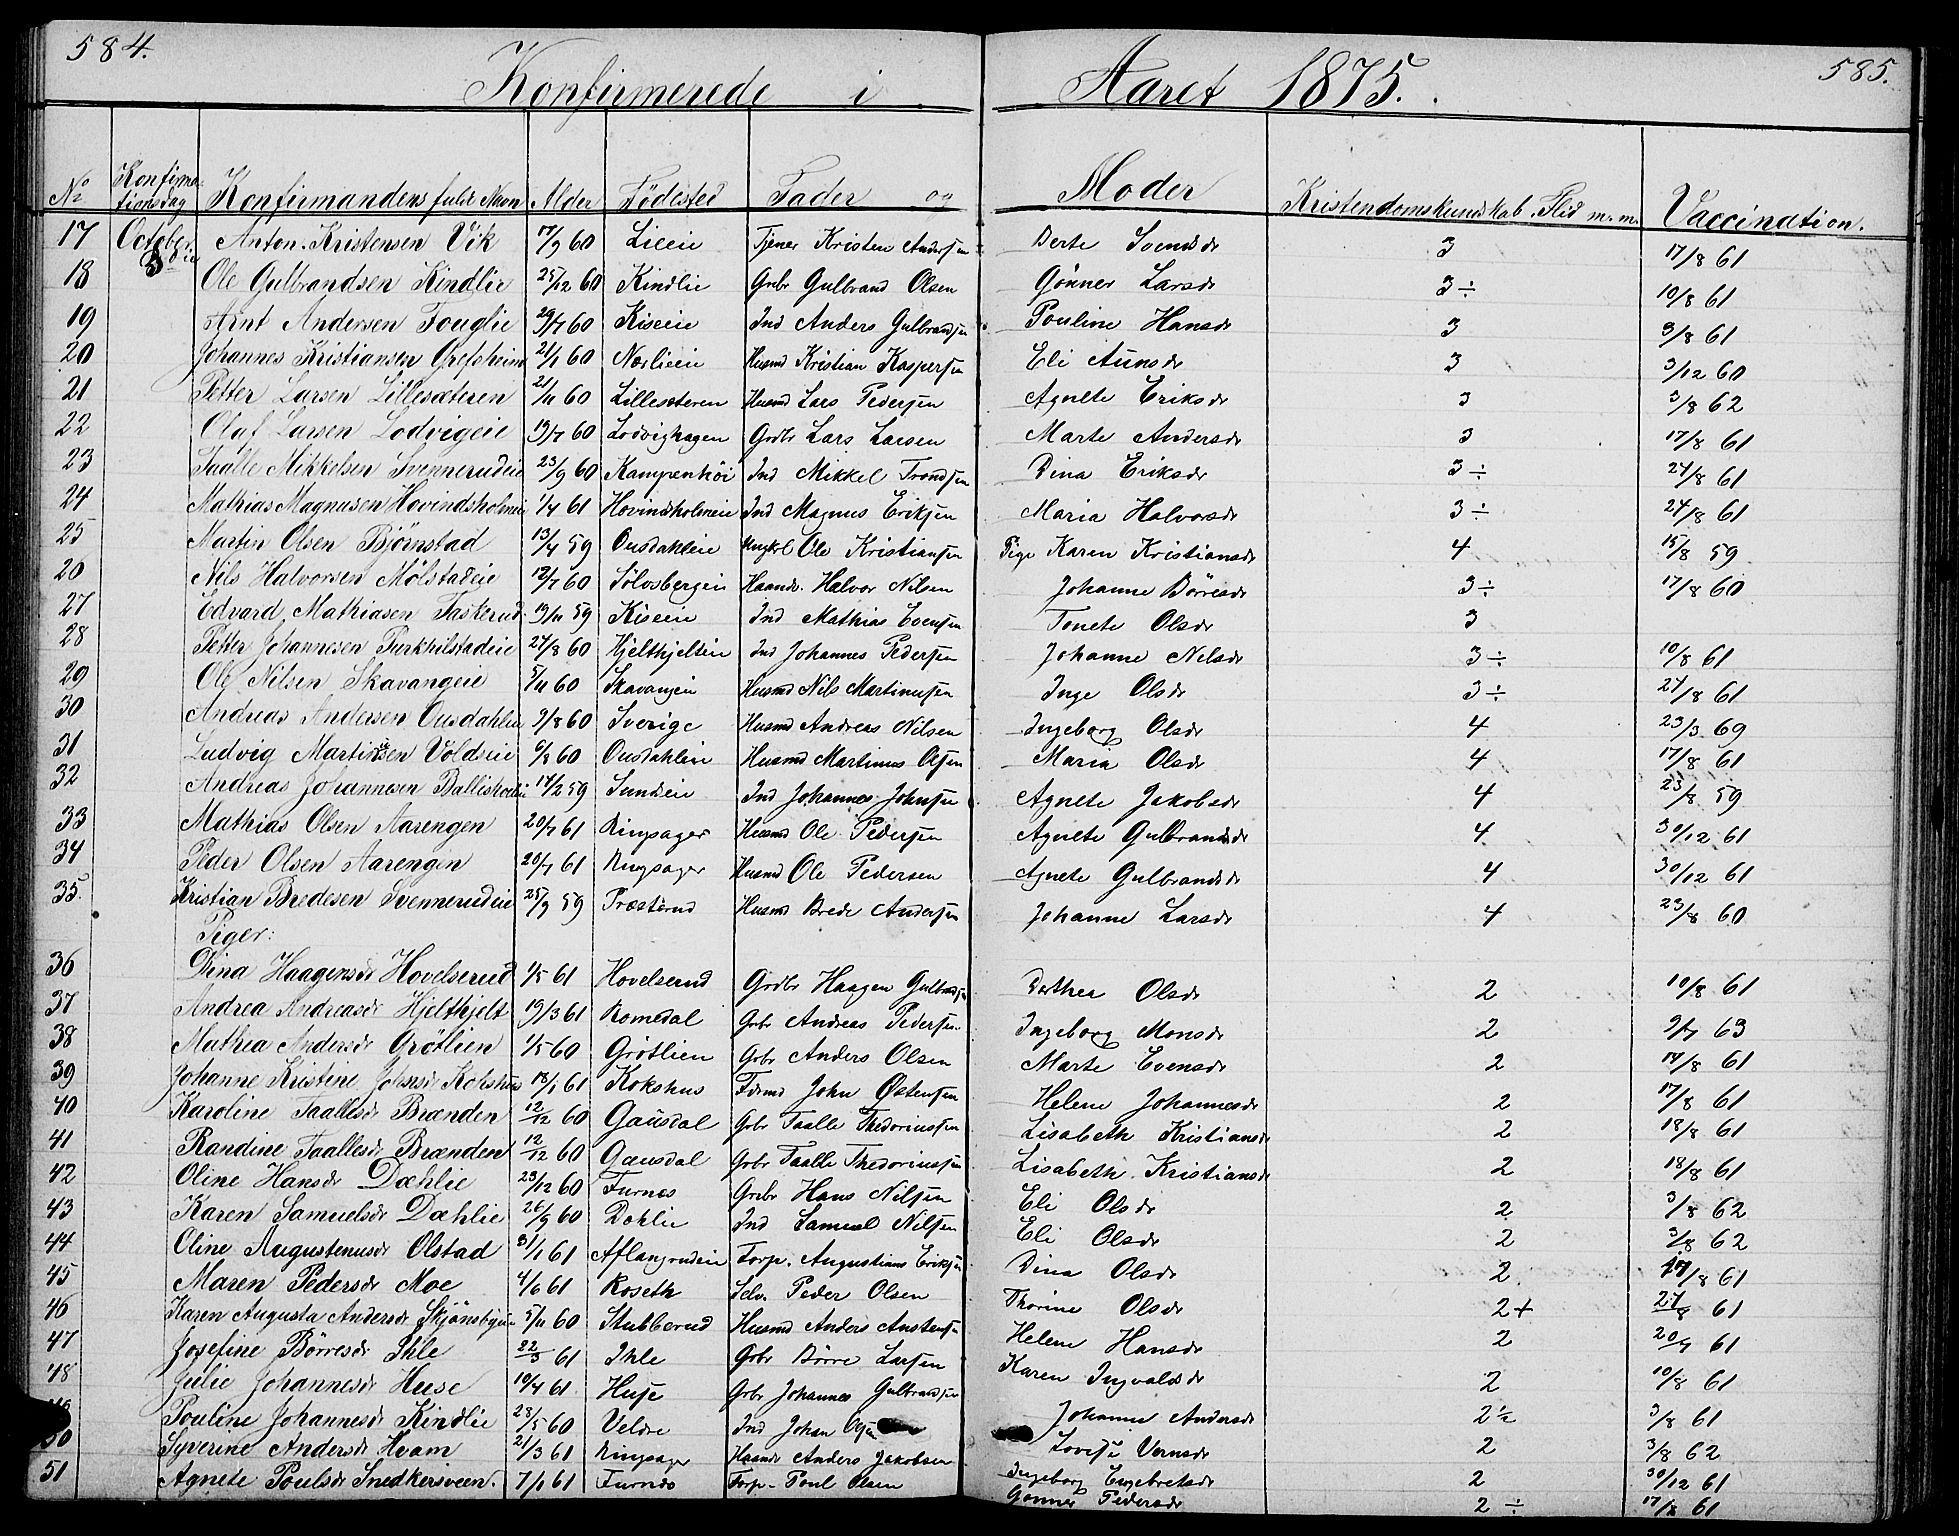 584. 585.
Konfirmerede i Aaret 1875.
No Konfirmationsdag Konfirmandens fulde Navn Alder Födested Fader og Moder Kristendomskundskab. Flid m. m. Vaccination.
17 October Anton Kristensen Vik 17/9 60 Lieeie Tjener Kristen Andersen Berte Svendsdr 3 17/8 61
18 Ole Gulbrandsen Kindlie 25/12 60 Kindlie Grbr Gulbrand Olsen Gönner Larsdr 3÷ 10/8 61
19 Arnt Andersen Fouglie 29/7 60 Kiseie Ind Anders Gulbrandsen Pouline Hansdr 3 3/8 61
20 Johannes Kristiansen Grefsheim 21/1 60 Nerlieeie Husmd Kristian Kaspersen Eli Aunsdr 3 3/12 60
21 Petter Larsen Lillesæteren 21/11 60 Lillesæteren Husmd Lars Pedersen Agnete Eriksdr 3 3/8 62
22 Olaf Larsen Lodvigeie 19/7 60 Lodvighagen Grdbr Lars Larsen Marte Andersdr 3 17/8 61
23 Taalle Mikkelsen Svennerudeie 23/9 60 Kampenhöi Ind Mikkel Trondsen Dina Eriksdr 3÷ 24/8 61
24 Mathias Magnusen Hovindsholmeie 1/4 61 Hovindsholmeie Ind Magnus Eriksen Maria Halvorsdr 3÷ 24/8 61
25 Martin Olsen Bjørnstad 13/4 59 Ousdahleie Ungkrl Ole Kristiansen Pige Karen Kristiansdr 4 15/8 59
26 Nils Halvorsen Mølstadeie 12/7 60 Sölvsbergeie Haandv. Halvor Nilsen Johanne Börresdr 3÷ 17/8 60
27 Edvard Mathiasen Taskerud 19/11 59 Kiseie Ind Mathias Evensen Tonete Olsdr 3
28 Petter Johannesen Purkhilstadeie 24/8 60 Hjelthjelteie Ind Johannes Pedersen Johanne Nilsdr 3÷ 10/8 61
29 Ole Nilsen Skavangeie 5/11 60 Skavangeie Husmd Nils Martinusen Inge Olsdr 3÷ 24/8 61
30 Andreas Andersen Ousdahleie 9/8 60 Sverige Husmd Andreas Nilsen Ingeborg Olsdr 4 23/3 69
31 Ludvig Martinsen Voldeie 6/2 60 Ousdahleie Husmd Martinus Olsen Maria Olsdr 4 17/8 61
32 Andreas Johannesen Ballishoeleie 14/2 59 Sundeie Ind Johannes Johnsen Agnete Jakobsdr 4 23/8 59
33 Mathias Olsen Aarengen 20/7 61 Ringsager Husmd Ole Pedersen Agnete Gulbrandsdr 4 30/12 61
34 Peder Olsen Aarengen 20/7 61 Ringsager Husmd Ole Pedersen Agnete Gulbrandsdr 4 30/12 61
35. Kristian Bredesen Svennerudeie 25/9 59 Præsterud Husmd Brede Andersen Johanne Larsdr 4 23/8 60
Piger:
36 Dina Haagensdr Hovelserud 1/5 61 Hovelserud Grdbr Haagen Gulbrandsen Berthea Olsdr 2 10/8 61
37 Andrea Andreasdr Hjelthjelt 19/3 61 Romedal Grbr Andreas Pedersen Ingeborg Monsdr 2 9/7 63
38 Mathea Andersdr Grötlien 1/5 60 Grötlien Grbr Anders Olsen Marte Evensdr 2 14/8 61
39 Johanne Kristine Johnsdr Kokshus 18/1 61 Kokshus Fdrmd John Östensen Helene Johannesdr 2 17/8 61
40 Karoline Taallesdr Brænden 12/12 60 Gausdal Grbr Taalle Thedorinssen Lisabeth Kristiansdr 2 18/8 61
41 Randine Taallesdr Brænden 12/12 60 Gausdal Grbr Taalle Thedorinssen Lisabeth Kristiansdr 2 18/8 61
42 Oline Hansdr Dæhlie 23/12 60 Furnes Grdbr Hans Nilsen Eli Olsdr 2 3/8 62
43 Karen Samuelsdr Dæhlie 26/9 60 Dæhlie Ind Samuel Nilsen Eli Olsdr 2 3/8 62
44 Oline Augustenusdr Olstad 31/1 61 Aflangrudeie Forp. Augustinus Eriksen Dina Olsdr 2 17/8 61
45 Maren Pedersdr Moe 4/6 61 Roseth Selv. Peder Olsen Thorine Olsdr 2+ 27/8 61
46 Karen Augusta Andersdr Skjønsbyeie 5/11 60 Stubberud Husmd Anders Anstensen Helene Hansdr 2 20/7 61
47 Josefine Börresdr Ihle 22/3 61 Ihle Grbr Börre Larsen Karen Ingvaldsdr 2 10/8 61
48 Julie Johannesdr Huse 10/4 61 Huse Grbr Johannes Gulbrandsen Johanne Andersdr 2½ 3/8 61
Pouline Johannesdr Kindlie 28/5 60 Veldre Ind Johan Lovise Vernsdr 2 3/8 62
50 Syverine Andersdr Hvam 21/3 61 Ringsager Haandv Anders Jakobsen Ingeborg Engebretsdr 2 30/12 61
51 Agnete Poulsdr Snedkersveen. 7/1 61 Furnæs Forp. Poul Olsen Gönner Pedersdr 2÷ 17/8 61